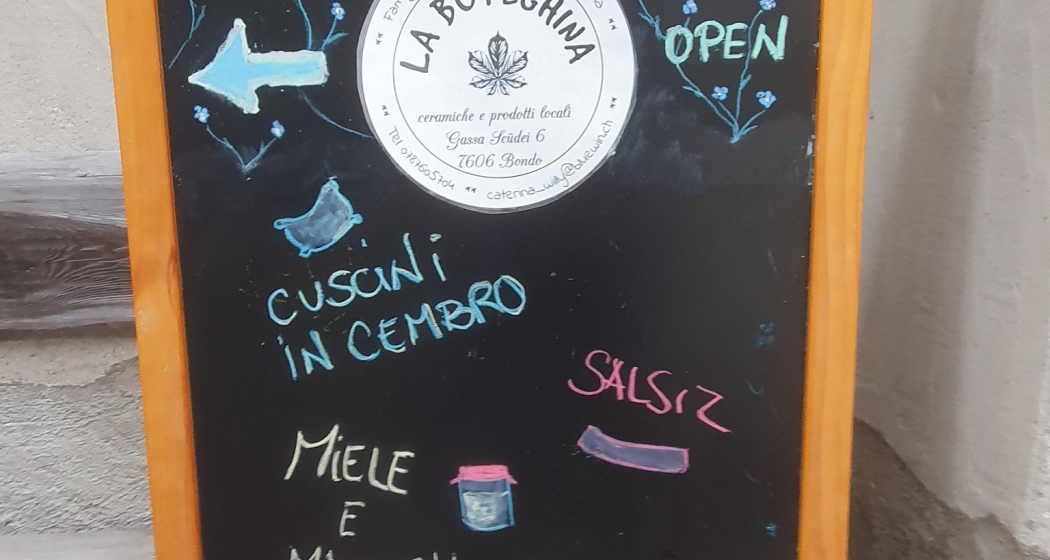 LA BOTEGHINA
OPEN
ceramiche e prodotti locali
Gassa Scüdei 6
7606 Bondo
Tel 0787605704 ** caterina_willy@bluewin.ch **
CUSCINI
IN CEMBRO
SALSIZ
MIELE
E